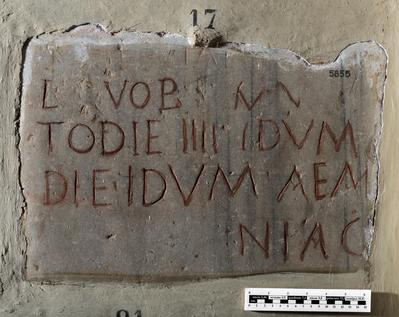 17
5855
L VOB
TODIE IIII IDVM
DIE IDVM AEM
NIAC